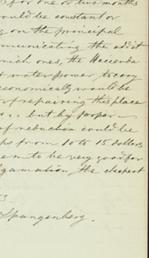 for one or two months
would be constant or
on the principal
municating the addit
ones, the Hacienda
water power, to carry
economically would be
of repairing this place
but by proper
of reduction could be
from 10 to 15 dollars
to be very good for
gamation, the cheapest
Spangenberg.